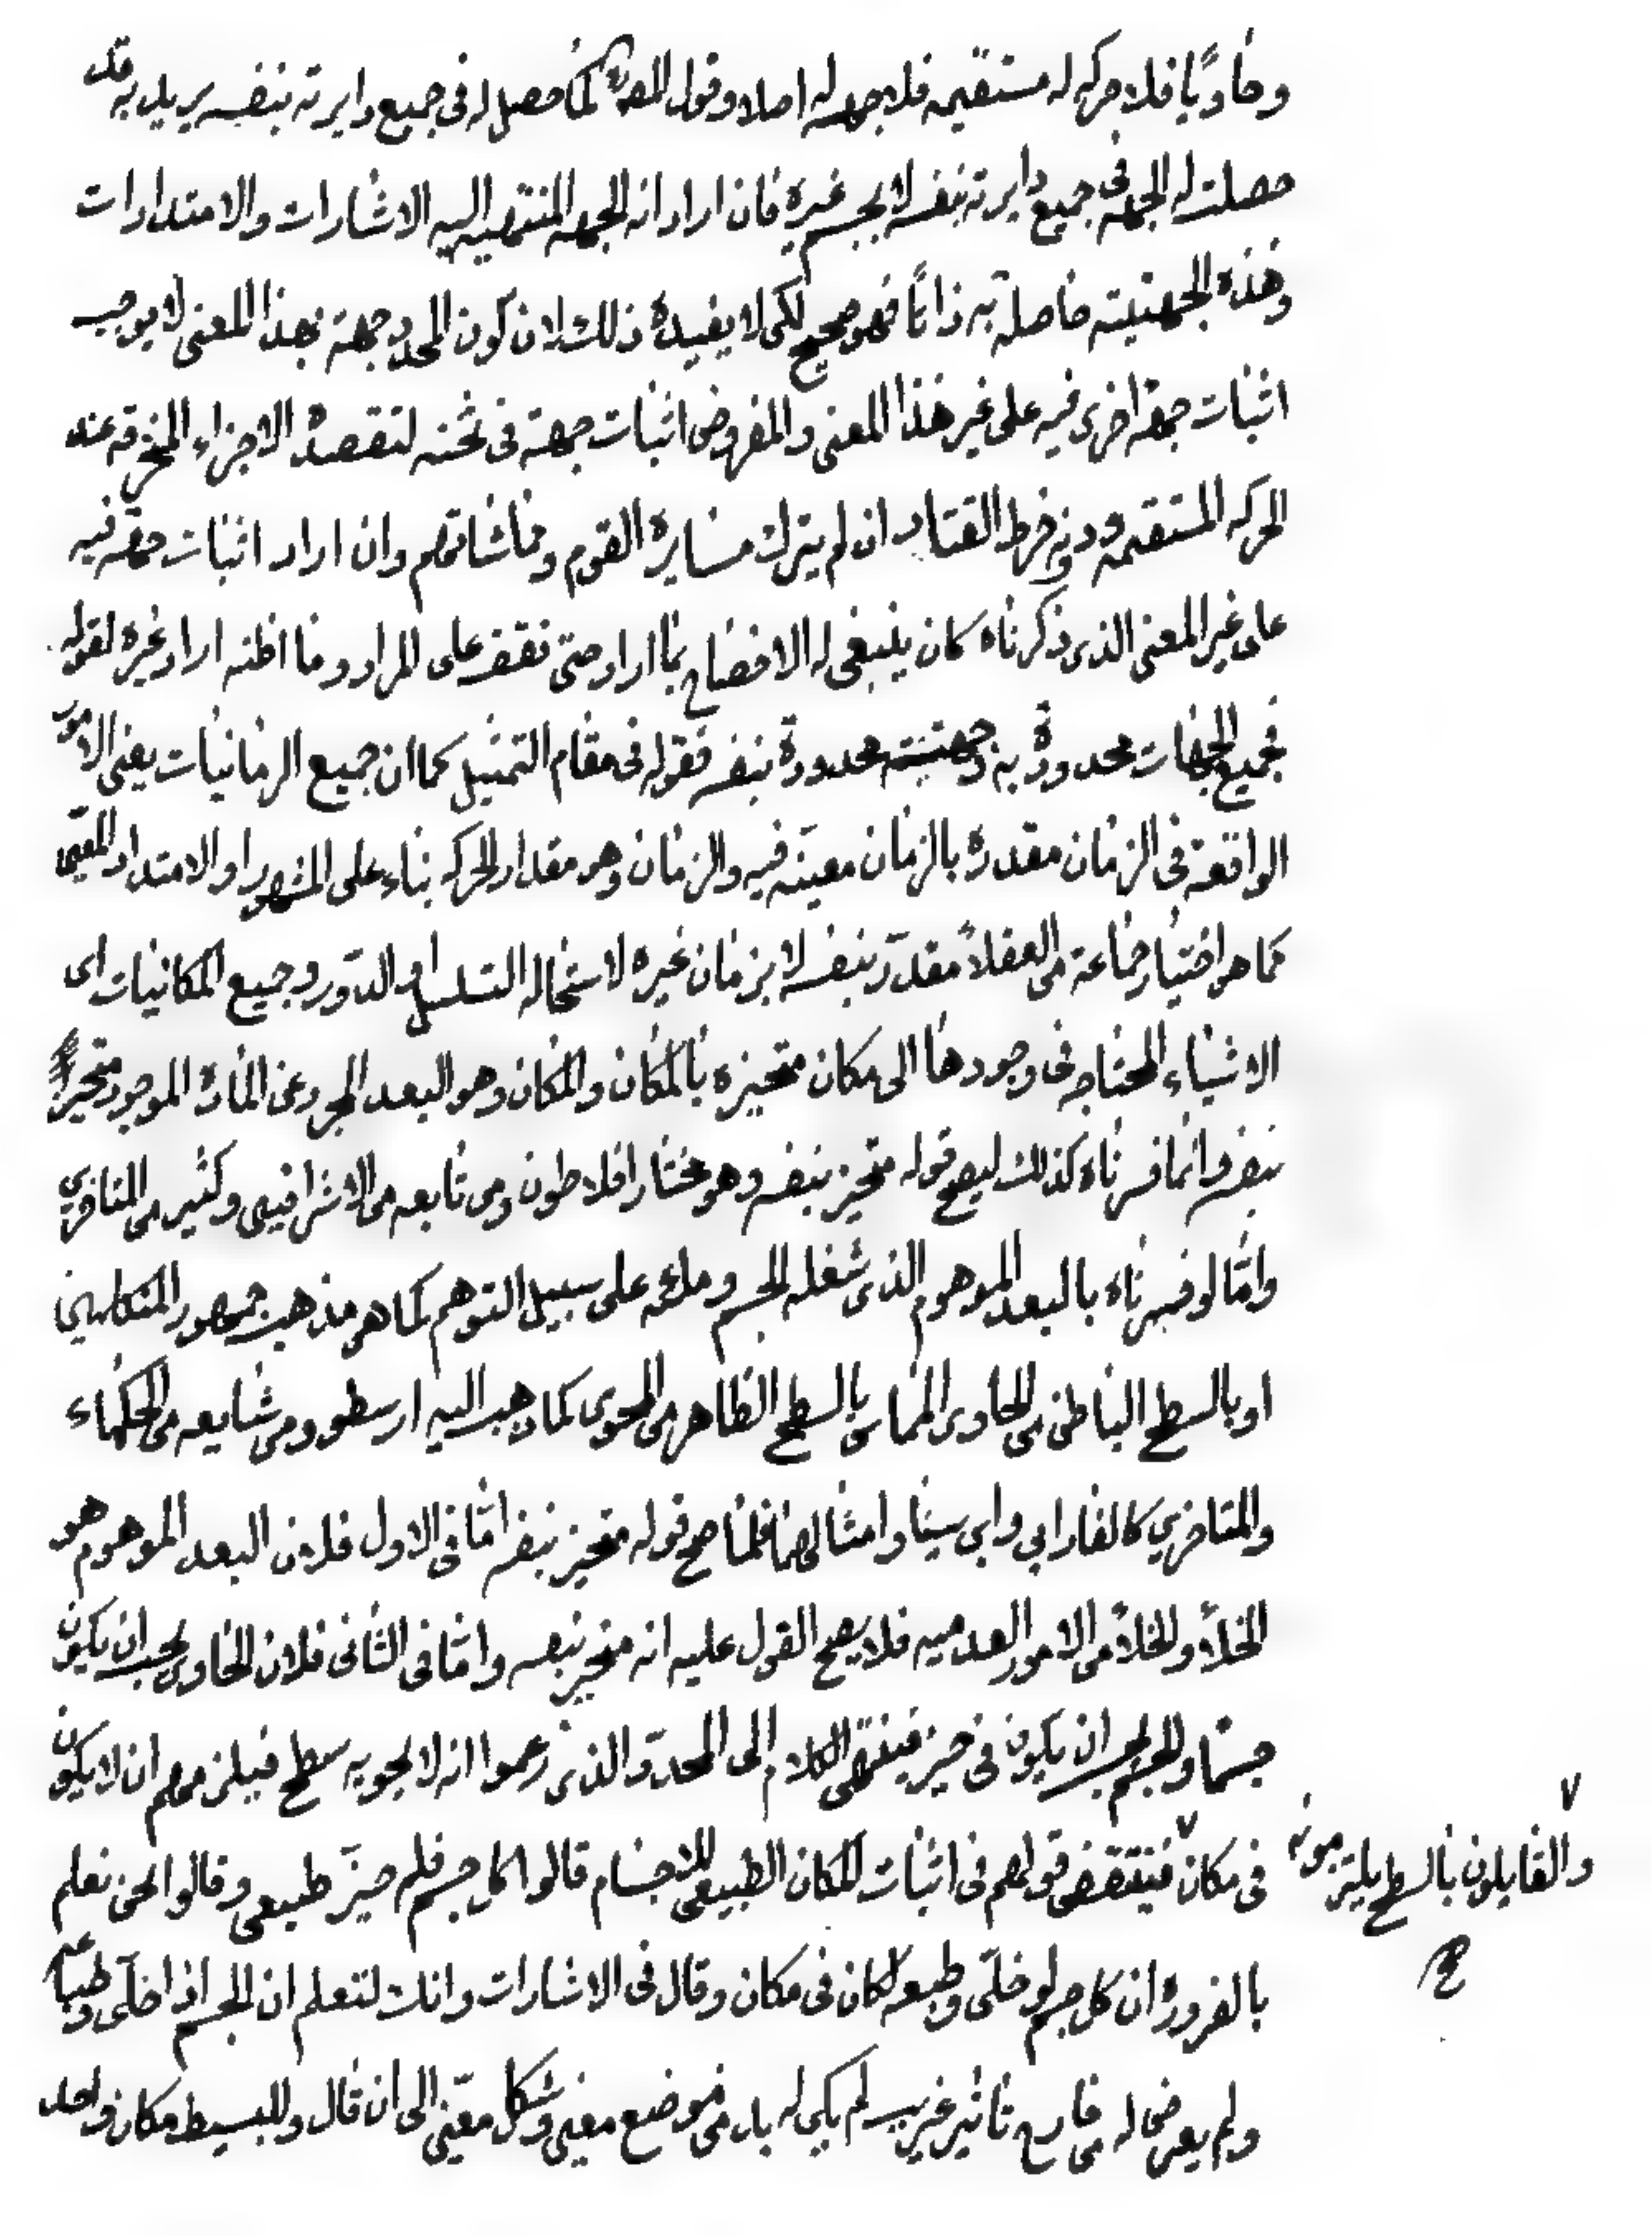 وحاويا فلا حركه له مستقيمه فلا جهه له اصلا وقول المص كما حصل له في جميع دايرته بنفسه يريد به قد
حصلت له الجهه في جميع دايرته بنفسه لا بجسم غيره فان اراد انه الجهه المنتهيه اليه الاشارات والامتدادات
وهذه الجهتيته حاصلة به ذاتًا فهو صحيح لكن لا يفيده ذلك لان كون المحدد جهة بهذا المعنى لا يوجب
اثبات جهة اخرى فيه على غير هذا المعنى والمفروض اثبات جهة في ثخنه لتقصده الاجزاء المنخرقه عند
الحركه المستقيمه ودونه خرط القتاد ان لم يترك مسايرة القوم ومماشاتهم وان اراد اثبات جهه فيه
على غير المعنى الذي ذكرناه كان ينبغي له الافصاح بما اراد حتى نقف على المراد وما اظنه اراد غيره لقوله
فجميع الجهات محدودة به وجهتيته محدودة بنفسه فقوله في مقام التمثيل كما ان جميع الزمانيات يعني الامور
الواقعة في الزمان مقدره بالزمان معينه فيه والزمان وهو مقدار الحركه بناء على المشهور او الامتداد
كما هو اختيار جماعة من العقلاء مقدّر بنفسه لا بزمان غيره لاستحاله التسلسل او الدّور وجميع المكانيات اى
الاشياء المحتاجه في وجودها الى مكان متحيزه بالمكان والمكان وهو البعد المجرد عن المادة الموجود متحيز
بنفسه وانما فسرناه كذلك ليصح قوله متحيز بنفسه وهو مختار افلاطون ومن تابعه من الاشراقيين وكثير من المتاخرين
وامّا لو فسرناه بالبعد الموهوم الذي شغله الجسم وملئه على سبيل التوهم كما هو مذهب جمهور المتكلمين
او بالسطح الباطن من الحاوى المماس بالسطح الظاهر من المحوى كما ذهب اليه ارسطو ومن شايعه من الحكماء
والمتاخرين كالفارابي وابي سينا وامثالهما فلما صح قوله متحيز بنفسه امّا في الاول فلان البعد الموهوم هو
الخلاء والخلاء من الامور العدميه فلا يصح القول عليه انه متحيز بنفسه وامّا في الثاني فلان الحاوى يجب ان يكون
جسمًا والجسم يجب ان يكون في حيز فينتهى الكلام الى المحدّد الذى زعموا انه لا يحويه سطح فيلزمهم ان لا يكون
في مكان ٧ فينتقض قولهم في اثبات المكان الطبيعى للاجسام قالوا كل جسم فله حيّز طبيعى وقالوا نحن نعلم
بالضرورة ان كل جسم لو خلّى وطبعه لكان في مكان وقال في الاشارات وانك لتعلم ان الجسم اذا خلّى وطباعه
ولم يعرض له من خارج تاثير غريب لم يكن له بد من موضع معين وشكل معيّن الى ان قال وللبسيط مكان واحد
٧
والقايلون بالسطح يلتزمونه
صح